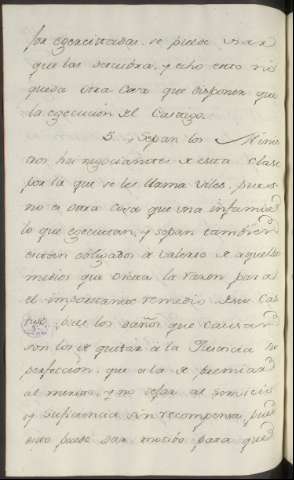 por egercitadas, se puede usar
que las descubra, y echo esto no
queda otra cosa que disponer que
la egecución del Castigo.
5. Sepan los Mini
tros, los negociantes de esta Clase
por la que se les llama Viles, pues
no es otra cosa que una infamia
lo que egecutan, y sepan tambien
estàn obligados a valerse de aquellos
medios que dicta la razon para
el importante remedio de su Cas
tigo, pues los daños que causan
son los de quitar à la Justicia su
perfeccion, que es la de premiar
al merito, y no dejar al servicio
y suficiencia sin recompensa, pues
esto puede dar motivo para que